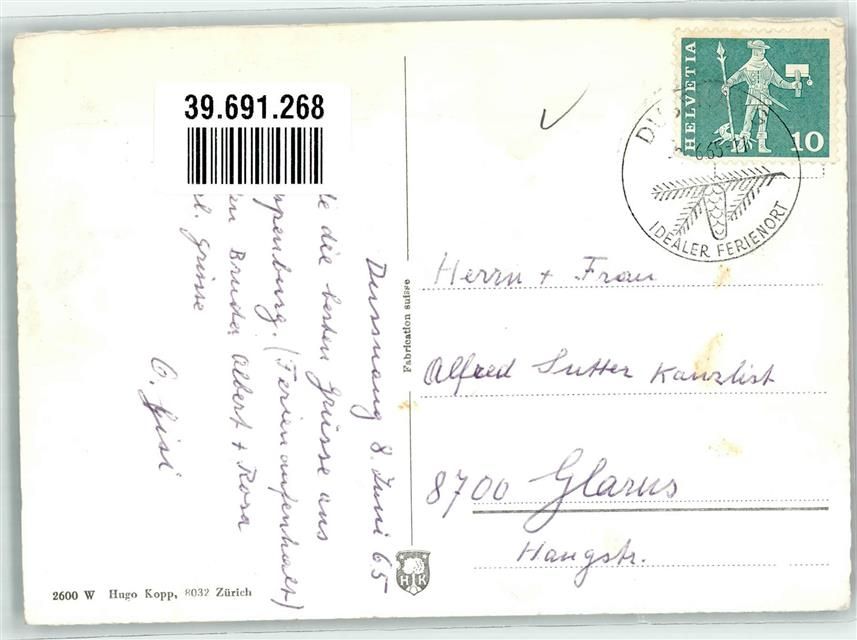 39.691.268
Dussnang 8. Juni 65
die besten Grüsse aus
ppenburg. (Ferienaufenhalt)
en Bruder Albert + Rosa
l. Grüsse
O. Gisi
HELVETIA
10
DUSSNANG
6.65
IDEALER FERIENORT
Herrn + Frau
Alfred Sutter Kanzlist
8700 Glarus
Hangstr.
Fabrication suisse
HK
2600 W Hugo Kopp, 8032 Zürich